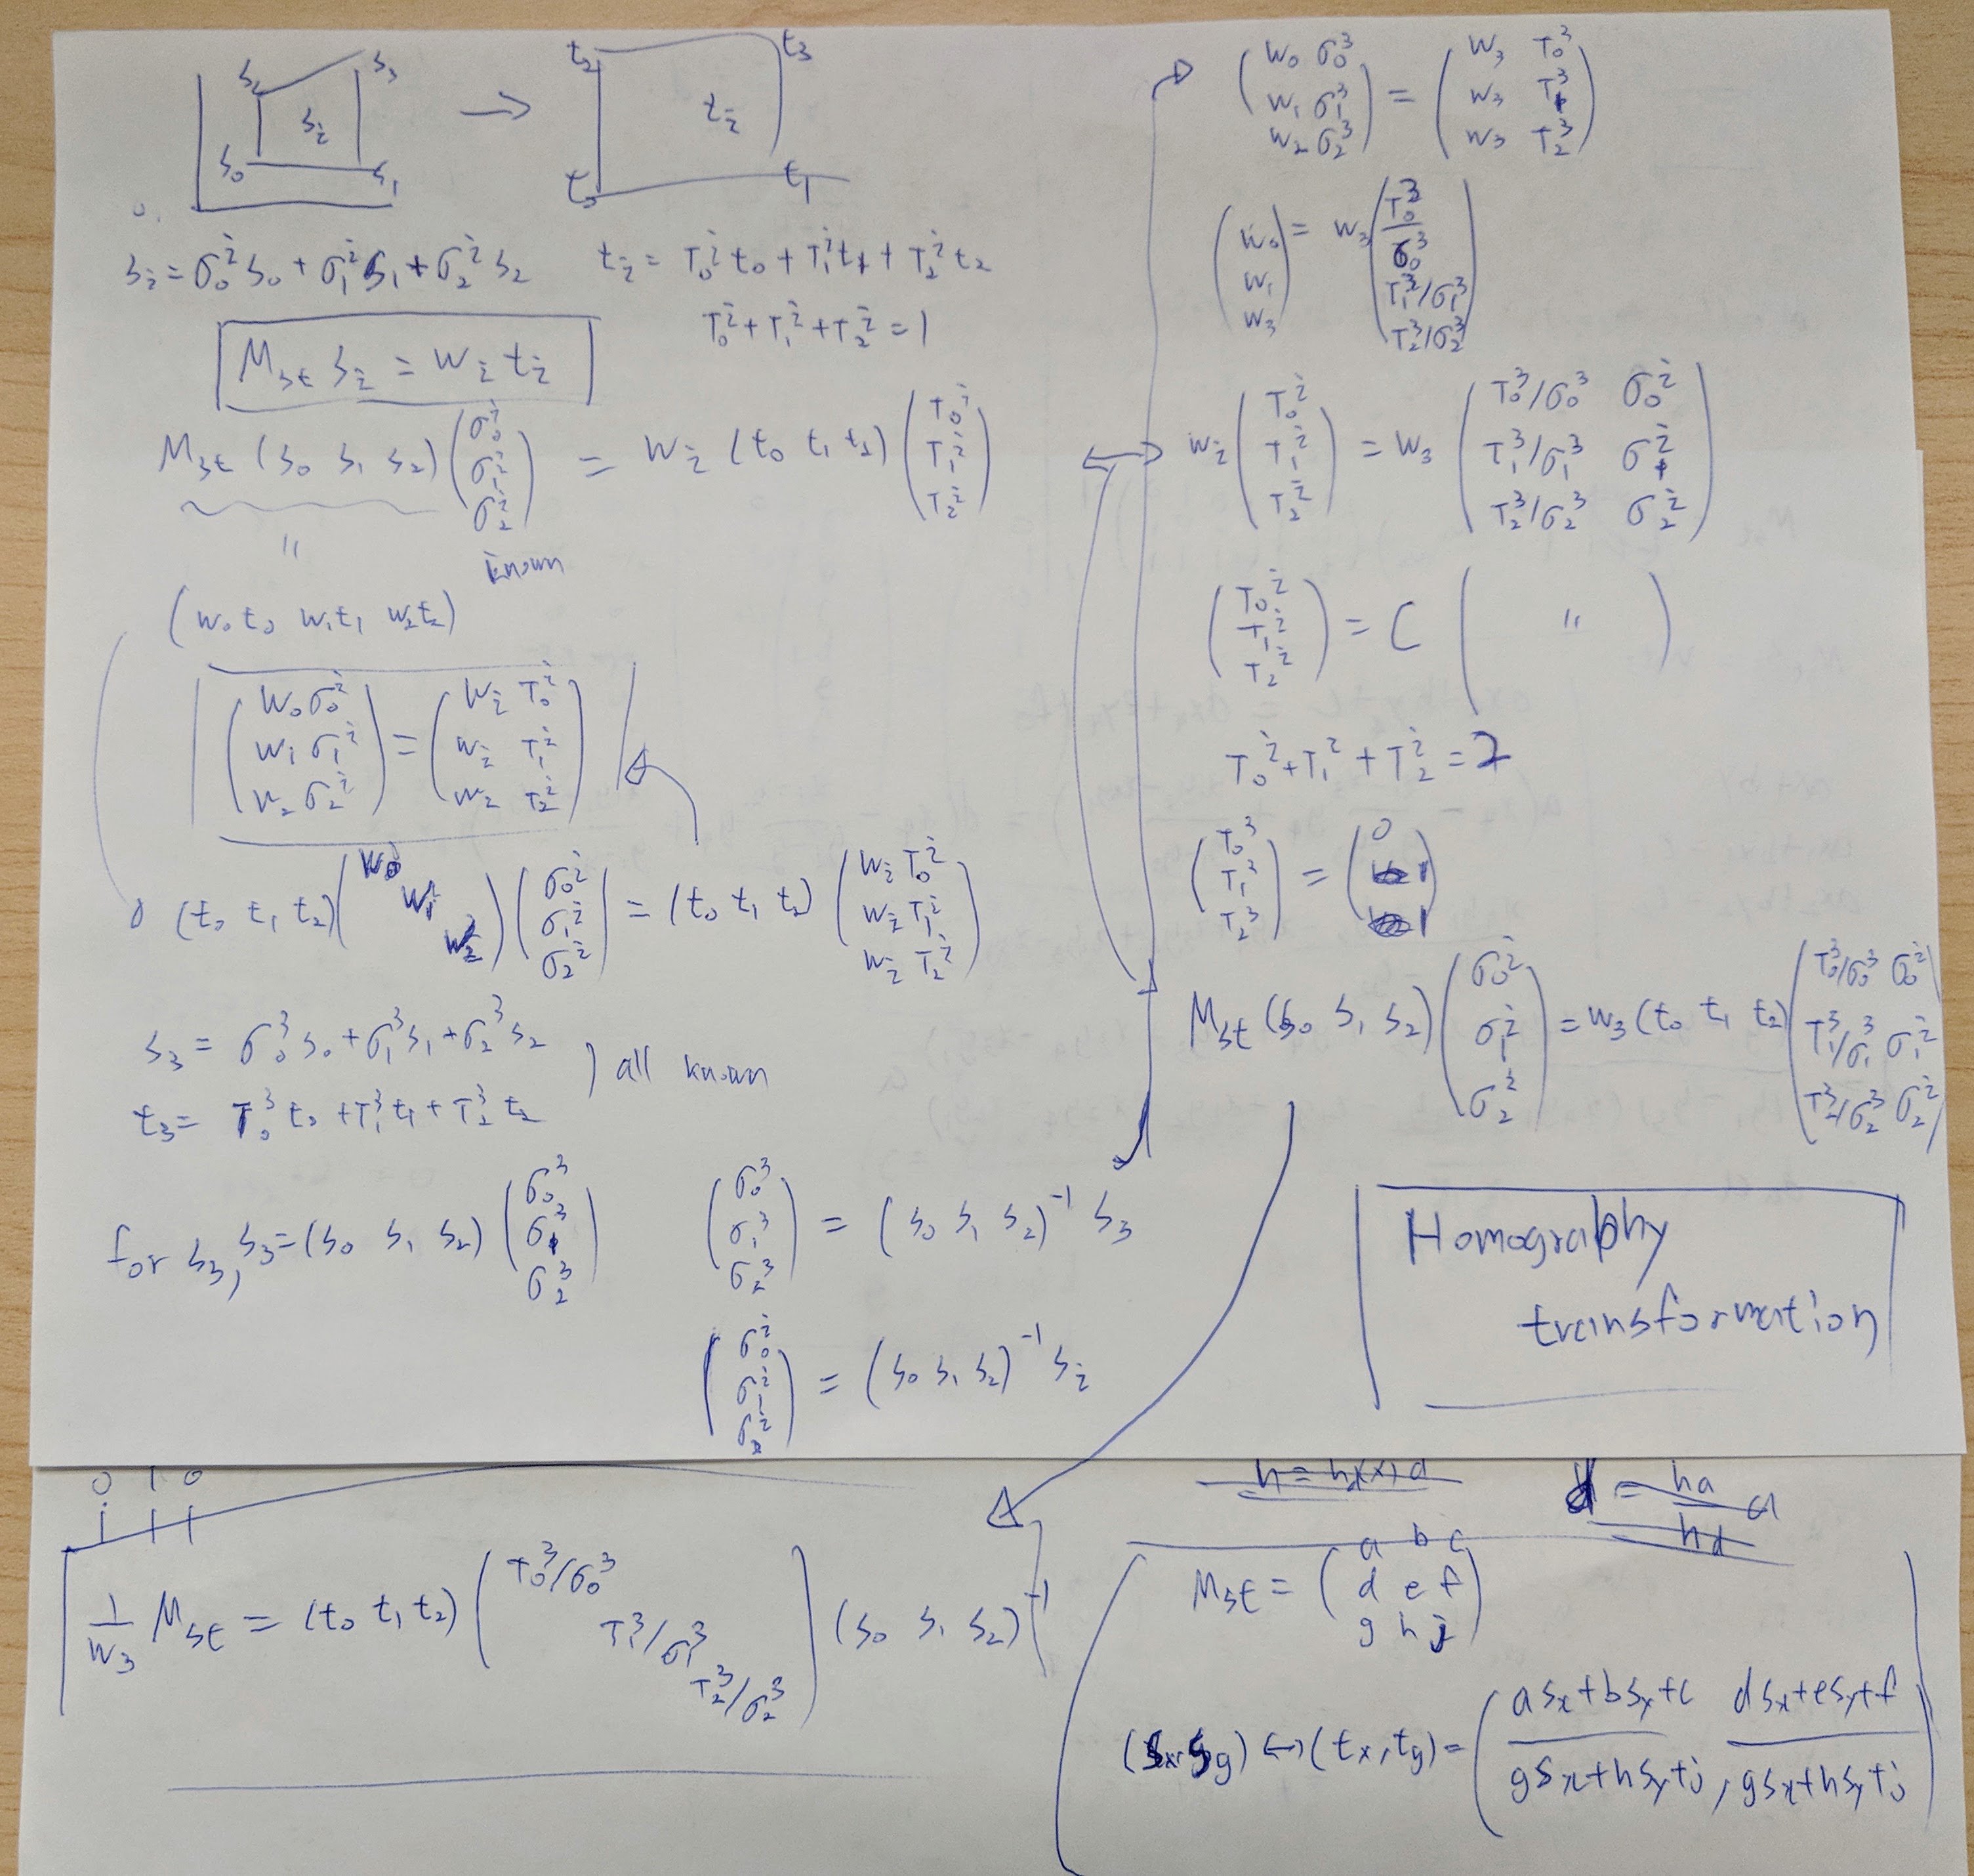 s₂ s₃ sᵢ s₀ s₁ → t₂ t₃ tᵢ t₀ t₁
sᵢ = σ₀ⁱ s₀ + σ₁ⁱ s₁ + σ₂ⁱ s₂ tᵢ = τ₀ⁱ t₀ + τ₁ⁱ t₁ + τ₂ⁱ t₂
τ₀ⁱ + τ₁ⁱ + τ₂ⁱ = 1
Mst sᵢ = wᵢ tᵢ
Mst (s₀ s₁ s₂) (σ₀ⁱ σ₁ⁱ σ₂ⁱ) = wᵢ (t₀ t₁ t₂) (τ₀ⁱ τ₁ⁱ τ₂ⁱ)
"
known
(w₀t₀ w₁t₁ w₂t₂)
(w₀σ₀ⁱ w₁σ₁ⁱ w₂σ₂ⁱ) = (wᵢ τ₀ⁱ wᵢ τ₁ⁱ wᵢ τ₂ⁱ)
(t₀ t₁ t₂) (w₀ w₁ w₂) (σ₀ⁱ σ₁ⁱ σ₂ⁱ) = (t₀ t₁ t₂) (wᵢ τ₀ⁱ wᵢ τ₁ⁱ wᵢ τ₂ⁱ)
s₃ = σ₀³ s₀ + σ₁³ s₁ + σ₂³ s₂
t₃ = τ₀³ t₀ + τ₁³ t₁ + τ₂³ t₂
) all known
for s₃, s₃ = (s₀ s₁ s₂) (σ₀³ σ₁³ σ₂³) (σ₀³ σ₁³ σ₂³) = (s₀ s₁ s₂)⁻¹ s₃
(σ₀ⁱ σ₁ⁱ σ₂ⁱ) = (s₀ s₁ s₂)⁻¹ sᵢ
(w₀ σ₀³ w₁ σ₁³ w₂ σ₂³) = (w₃ τ₀³ w₃ τ₁³ w₃ τ₂³)
(w₀ w₁ w₃) = w₃ (τ₀³/σ₀³ τ₁³/σ₁³ τ₂³/σ₂³)
wᵢ (τ₀ⁱ τ₁ⁱ τ₂ⁱ) = w₃ (τ₀³/σ₀³ σ₀ⁱ τ₁³/σ₁³ σ₁ⁱ τ₂³/σ₂³ σ₂ⁱ)
(τ₀ⁱ τ₁ⁱ τ₂ⁱ) = C ( " )
τ₀ⁱ + τ₁ⁱ + τ₂ⁱ = 1
(τ₀³ τ₁³ τ₂³) = (0 1 1)
Mst (s₀ s₁ s₂) (σ₀ⁱ σ₁ⁱ σ₂ⁱ) = w₃ (t₀ t₁ t₂) (τ₀³/σ₀³ σ₀ⁱ τ₁³/σ₁³ σ₁ⁱ τ₂³/σ₂³ σ₂ⁱ)
Homography
transformation
0 1 0
1/w₃ Mst = (t₀ t₁ t₂) (τ₀³/σ₀³ τ₁³/σ₁³ τ₂³/σ₂³) (s₀ s₁ s₂)⁻¹
d = ha/hd d
Mst = (a b c d e f g h j)
(sx, sy) ↔ (tx, ty) = (asx+bsy+c / gsx+hsy+j, dsx+esy+f / gsx+hsy+j)